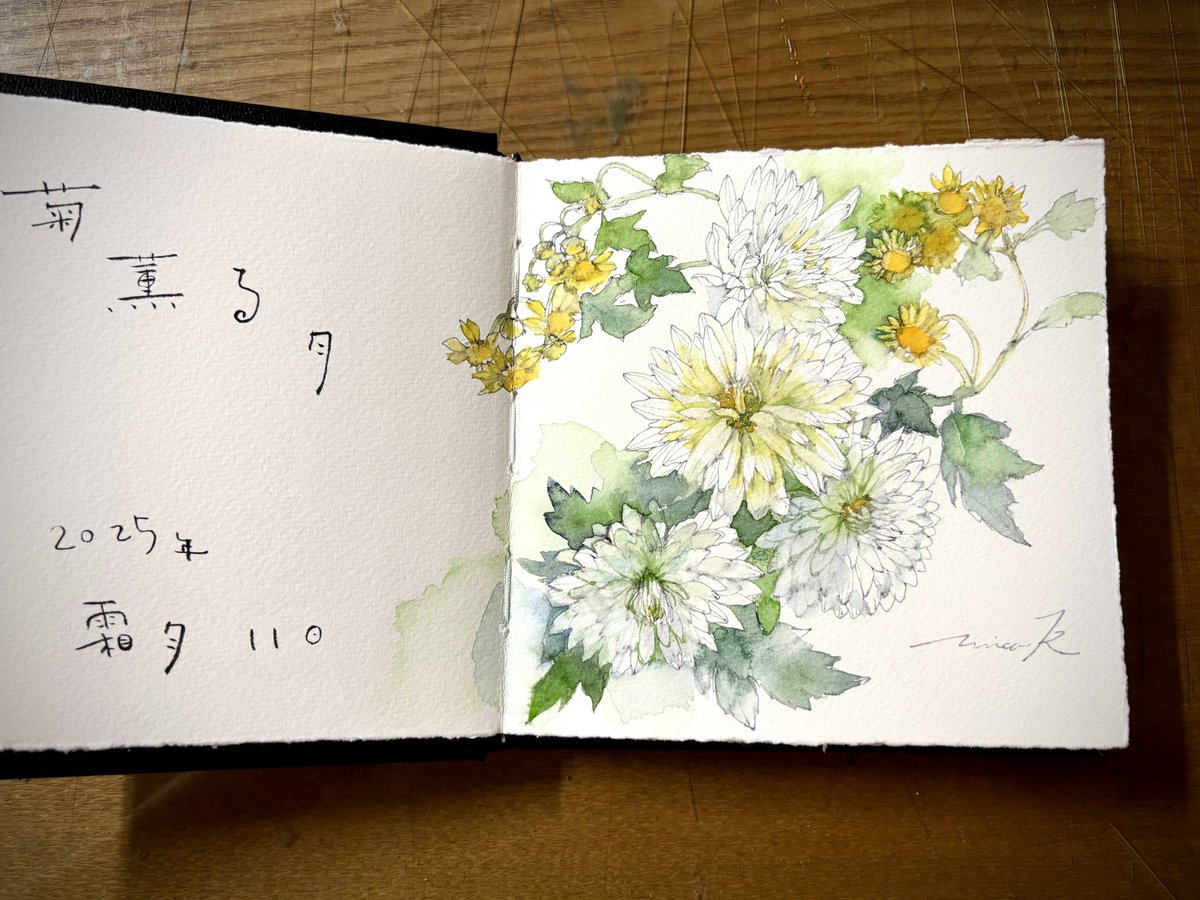 菊薫る月
2025年
霜月 11日